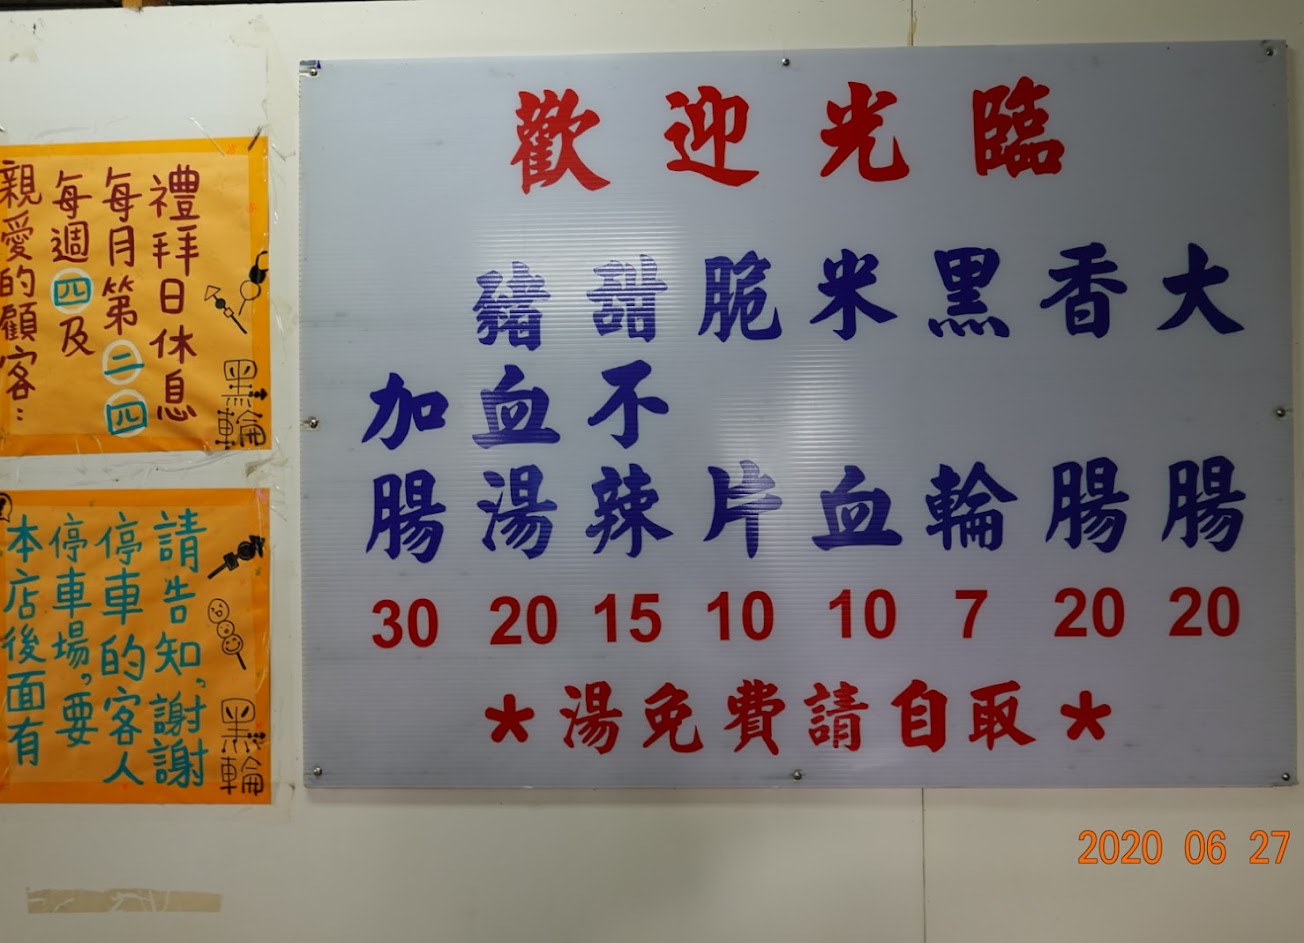 歡迎光臨
大腸 20
香腸 20
黑輪 7
米血 10
脆片 10
甜不辣 15
豬血湯 20
加腸 30
*湯免費請自取*
親愛的顧客:
每週四及
每月第二四
禮拜日休息
黑輪
本店後面有
停車場,要
停車的客人
請告知,謝謝
黑輪
2020 06 27